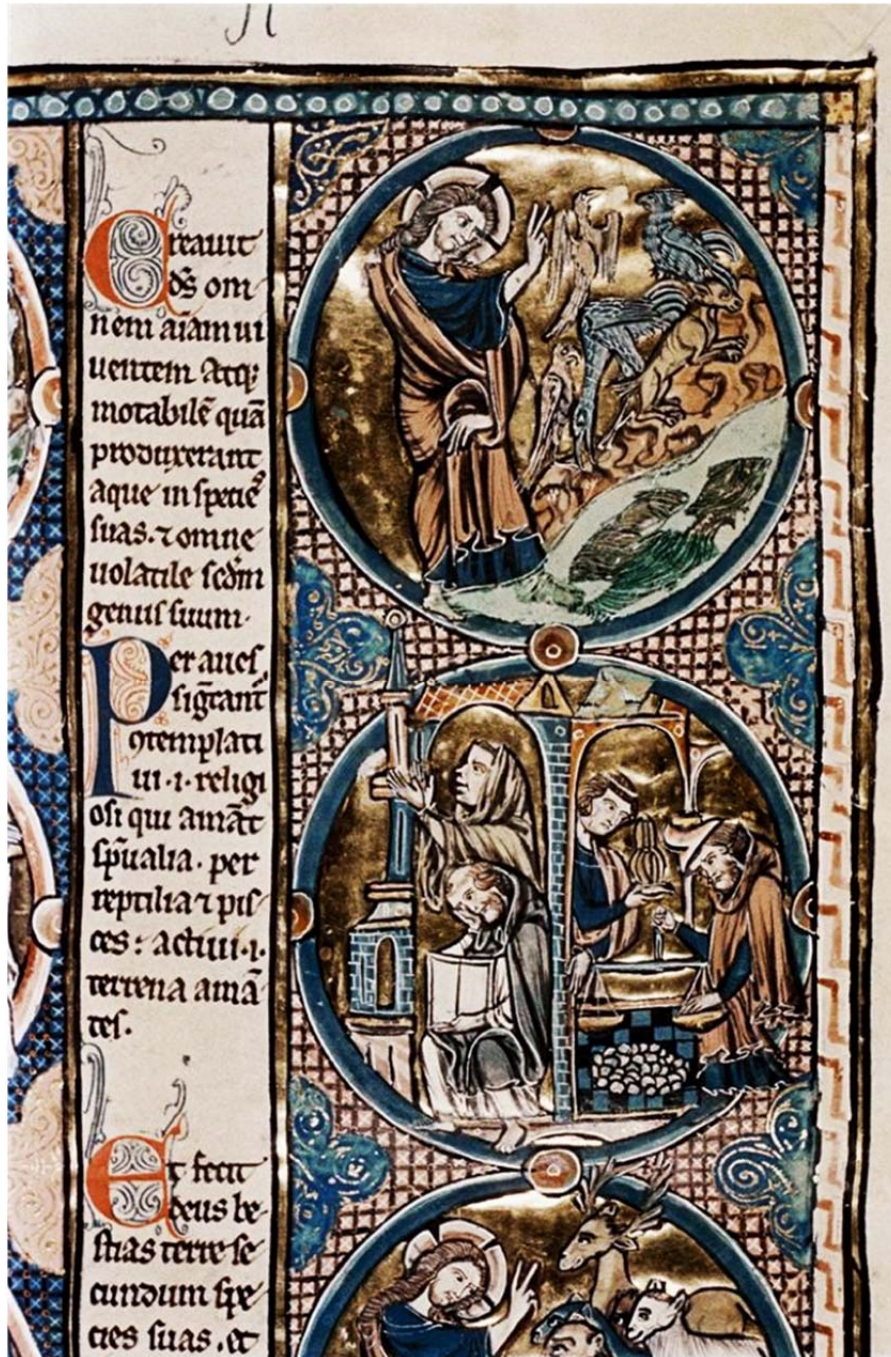 Creauit
ds om
nem aiam ui
uentem atq;
motabilē quā
produxerant
aque in specie⁹
suas. ⁊ omne
uolatile scdm
genus suum.
Per aues
sigcant
ꝯtemplati
ui .i. religi
osi qui amāt
spualia. per
reptilia ⁊ pis
ces: actiui .i.
terrena amā
tes.
Et fecit
deus be
stias terre se
cundum spe
cies suas. et